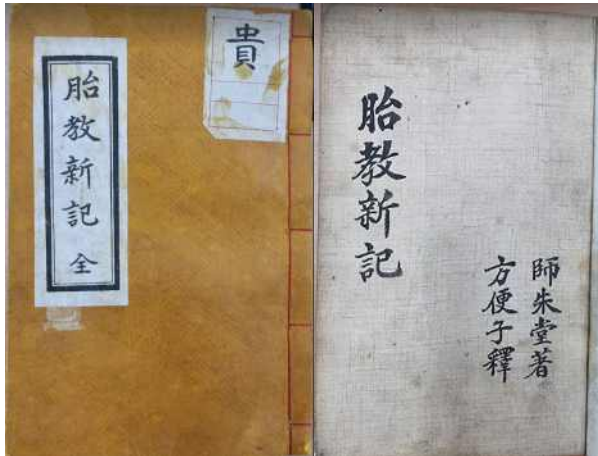 貴
胎教新記 全
胎教新記
師朱堂著
方便子釋